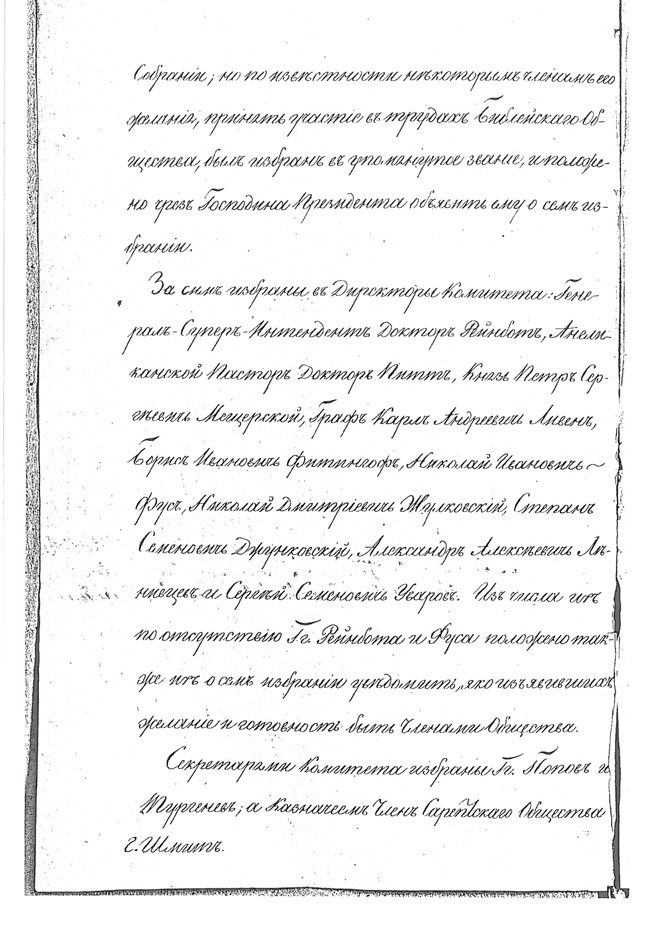 Собранiи; но по извѣстности нѣкоторымъ членамъ его
желанiя, принять участiе въ трудахъ Библейскаго Об-
щества, былъ избранъ въ упомянутое званiе, и положе-
но чрезъ Господина Президента объявить ему о семъ из-
бранiи.
За симъ избраны въ Директоры Комитета: Гене-
ралъ-Суперъ-Интендентъ Докторъ Рейнботъ, Англи-
канской Пасторъ Докторъ Питтъ, Князь Петръ Сер-
гѣевичь Мещерской, Графъ Карлъ Андреевичь Ливенъ,
Борисъ Ивановичь Фитингофъ, Николай Ивановичь ~
Фусъ, Николай Дмитрiевичь Жулковскiй, Степанъ
Семеновичь Джунковскiй, Александръ Алексѣевичь Лѣ-
нивцевъ и Сергѣй Семеновичь Уваровъ. Изъ числа ихъ
по отсутствiю Гг. Рейнбота и Фуса положено так-
же ихъ о семъ избранiи увѣдомить, яко изъявившихъ
желанiе и готовность быть Членами Общества.
Секретарями Комитета избраны Гг. Поповъ и
Тургеневъ; а Казначеемъ Членъ Сарептскаго Общества
Г. Шмитъ.